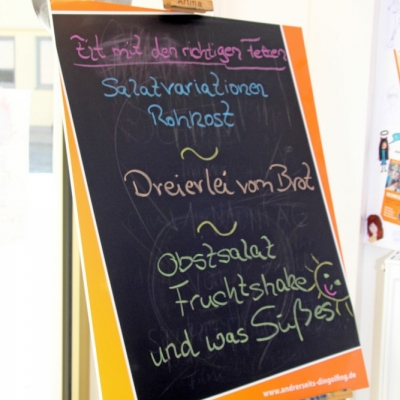 Fit mit den richtigen Fetten
Salatvariationen
Rohkost
~
Dreierlei vom Brot
~
Obstsalat
Fruchtshake
und was Süßes!
www.andrerseits-dingolfing.de